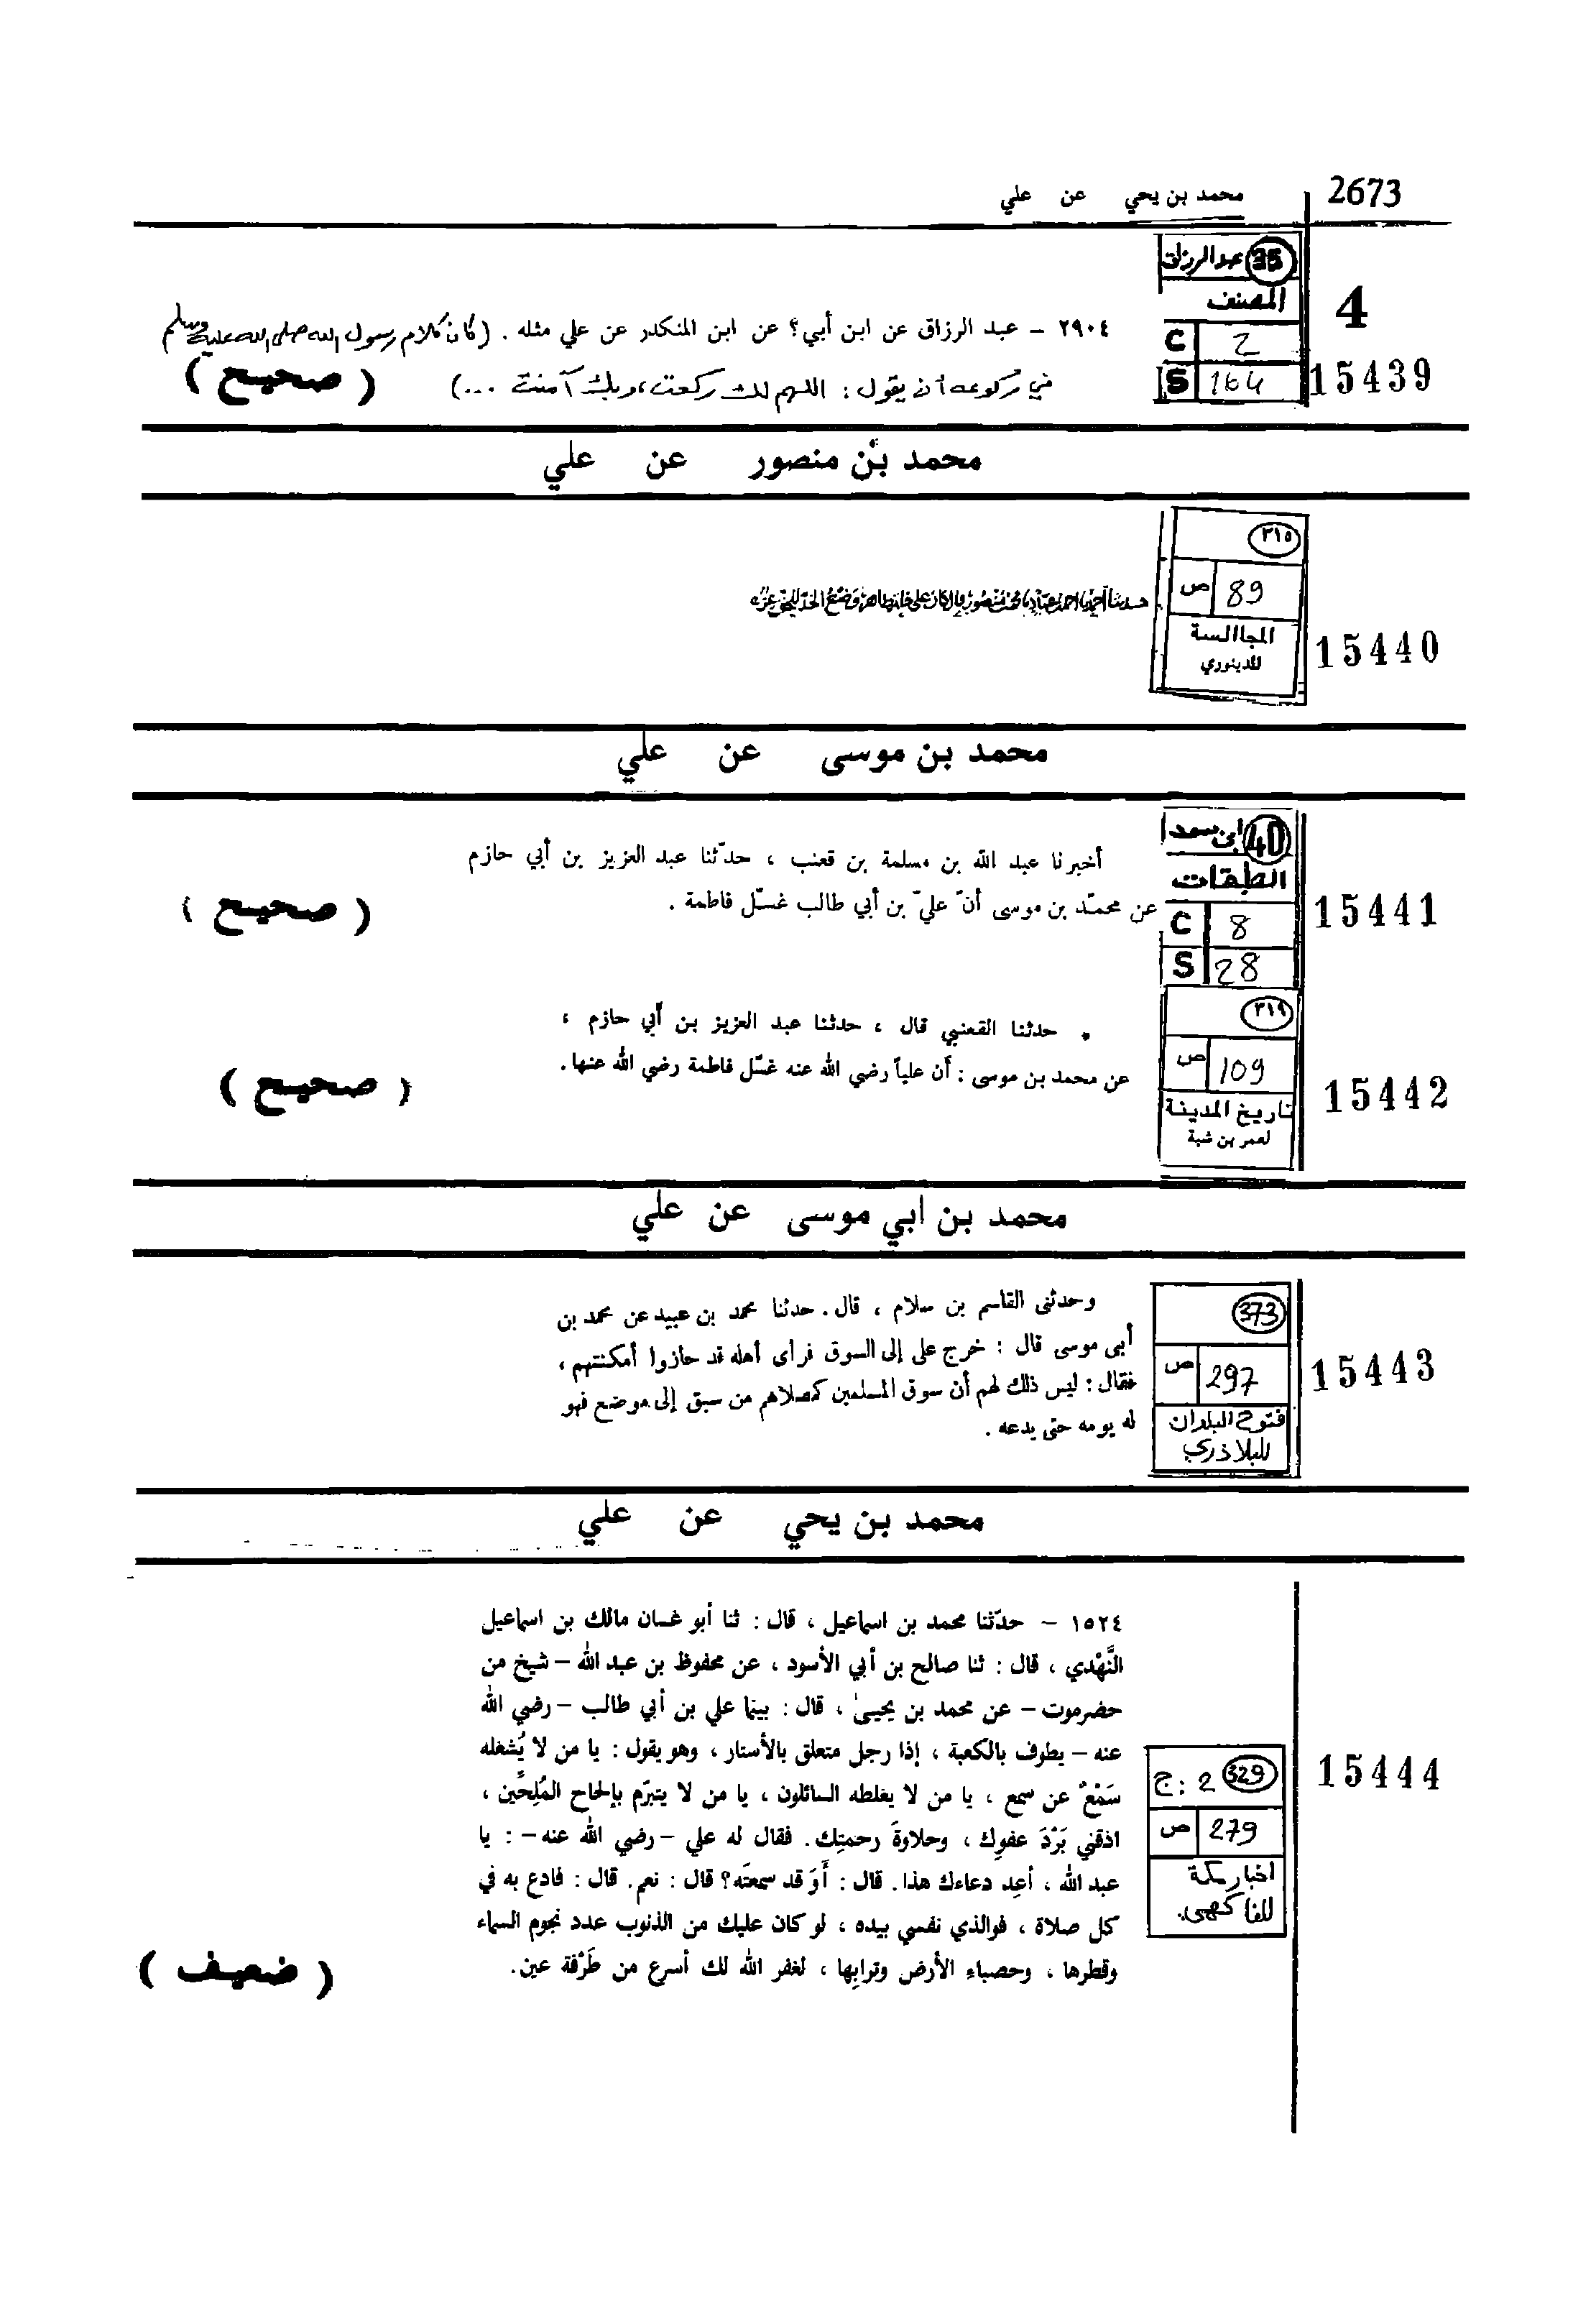 2673
محمد بن يحي عن علي
35 عبد الرزاق
المصنف
C 2
S 164
4
15439
٢٩٠٤ – عبد الرزاق عن ابن أبي؟ عن ابن المنكدر عن علي مثله . (كان كلام رسول الله صلى الله عليه وسلم
في ركوعه أن يقول : اللهم لك ركعت ، وبك آمنت ...)
( صحيح )
محمد بن منصور عن علي
٣١٥
ص 89
المجاالسة
للدينوري
15440
محمد بن موسى عن علي
40 ابن سعد
الطبقات
C 8
S 28
15441
أخبرنا عبد الله بن مسلمة بن قعنب ، حدّثنا عبد العزيز بن أبي حازم
عن محمّد بن موسى أنّ عليّ بن أبي طالب غسّل فاطمة .
( صحيح )
٣١٩
ص 109
تاريخ المدينة
لعمر بن شبة
15442
* حدثنا القعنبي قال ، حدثنا عبد العزيز بن أبي حازم ،
عن محمد بن موسى : أن علياً رضي الله عنه غسّل فاطمة رضي الله عنها.
( صحيح )
محمد بن ابي موسى عن علي
373
ص 297
فتوح البلدان
للبلاذري
15443
وحدثنى القاسم بن سلام ، قال . حدثنا محمد بن عبيد عن محمد بن
أبى موسى قال : خرج على إلى السوق فرأى أهله قد حازوا أمكنتهم ،
فقال : ليس ذلك لهم أن سوق المسلمين كمصلاهم من سبق إلى موضع فهو
له يومه حتى يدعه .
محمد بن يحي عن علي
329 ج : 2
ص 279
اخبار مكة
للفاكهي.
15444
١٥٢٤ – حدّثنا محمد بن اسماعيل ، قال : ثنا أبو غسان مالك بن اسماعيل
النَّهْدي ، قال : ثنا صالح بن أبي الأسود ، عن محفوظ بن عبد الله – شيخ من
حضرموت – عن محمد بن يحيىٰ ، قال : بينما علي بن أبي طالب – رضي الله
عنه – يطوف بالكعبة ، إذا رجل متعلق بالأستار ، وهو يقول : يا من لا يُشغله
سَمْعٌ عن سمع ، يا من لا يغلطه السائلون ، يا من لا يتبرّم بإلحاح المُلِحِّين ،
اذقني بَرْدَ عفوِك ، وحلاوةَ رحمتِك . فقال له علي – رضي الله عنه – : يا
عبد الله ، أعِد دعاءك هذا . قال : أوَ قد سمعتَه ؟ قال : نعم . قال : فادع به في
كل صلاة ، فوالذي نفسي بيده ، لو كان عليك من الذنوب عدد نجوم السماء
وقطرها ، وحصباءِ الأرض وترابِها ، لغفر الله لك أسرع من طَرْفة عين .
( ضعيف )